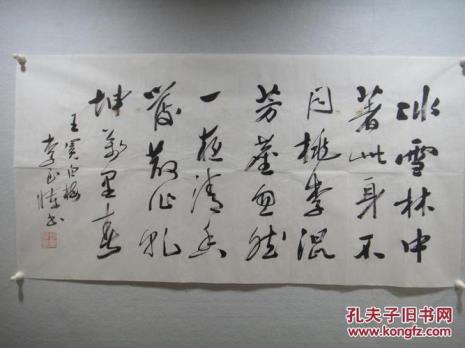 冰雪林中
著此身不
同桃李混
芳塵忽然
一夜清香
發散作乾
坤萬里春
王冕白梅
李正书
孔夫子旧书网
www.kongfz.com